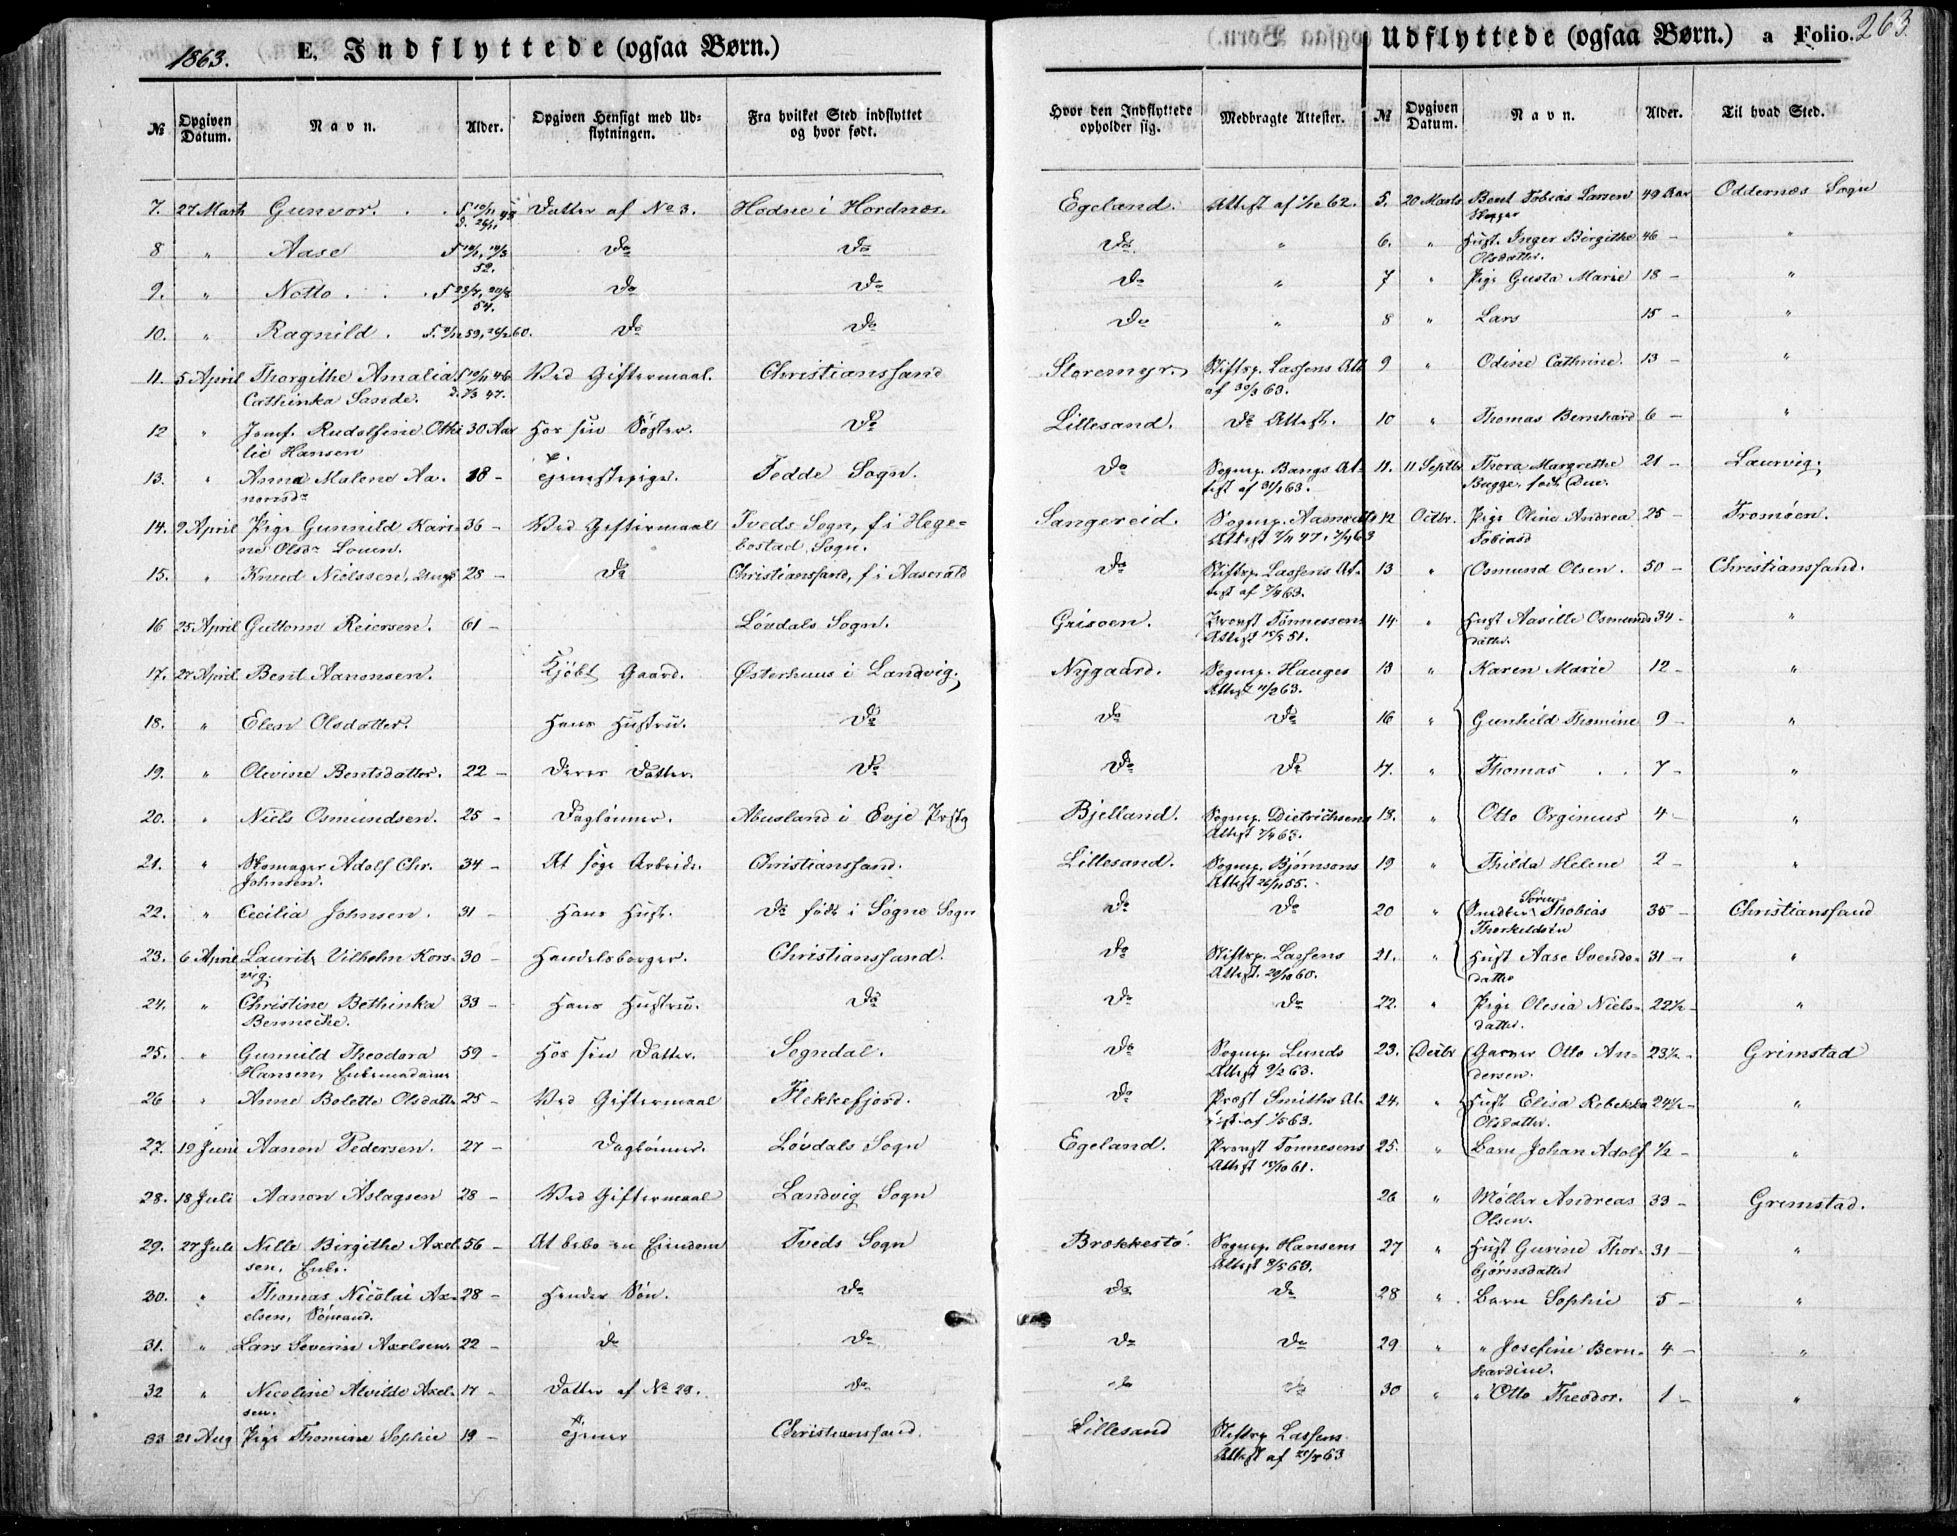 1863. E. Indflyttede (ogsaa Børn.)
№ Opgiven Datum. Navn. Alder. Opgiven Hensigt med Udflytningen. Fra hvilket Sted indflyttet og hvor født. Hvor den Indflyttede opholder sig. Medbragte Attester.
7. 27 Marts Gunvor. Datter af No 3. Hodne i Hordnes. Egeland. Attest af 62.
8 " Aase Do Do Do "
9. " Notto. Do Do Do "
10. " Ragnild. Do Do Do "
11. 5 April Thorgithe Amalia Ved Giftermaal. Christianssand Storemyr. Stiftsp. Lassens Att.
Cathinka Sande. af 30/3 63.
12 " Jomf. Rudolfine Othi 30 Aar Hos sin Søster. Do Lillesand. Do Attest.
lie Hansen
13. " Anna Malene Aa- 18 - Tjenestepige. Fedde Sogn. Do Sognep. Bangs At-
norsdr test af 31/1 63.
14. 9 April Pige Gunnild Kari- 36 - Ved Giftermaal Tveds Sogn, f. i Hege- Sangereid. Sognep. Aamodts
ne Olsdr Louen. bostad Sogn. Attest
15. " Knud Nielssen, Ungk 28 - Do Christianssand, f. i Aaserald Do Stiftsp. Lassens At-
test af 63.
16 25 April Guttorm Reiersen. 61 - Løvdals Sogn. Grisøen. Provst Tønnessens
Attest 51.
17. 27 April Bent Aanonsen. Kjøbt Gaard. Østerhuus i Landvig. Nygaard. Sognep. Hauges
Attest 63.
18. " Elen Olsdatter. Hans Hustru. Do Do Do
19. " Olevine Bentsdatter. 22 - Deres Datter. Do Do Do
20. " Niels Osmundsen. 25 - Daglønner. Abusland i Evje Prstg Bjelland. Sognep. Dietrichsens
Attest 63.
21. " Skomager Adolf Chr. 34 - At søge Arbeide. Christianssand. Lillesand. Sognep. Bjørnsons
Johnsen. Attest 55.
22. " Cecilia Johnsen. 31 - Hans Hust. Do født i Søgne Sogn Do Do
23. 6 April Laurits Vilhelm Kors- 30 - Handelsborger. Christianssand. Do Stiftsp. Lassens
vig. Attest. 60.
24. " Christine Bethinka 33 - Hans Hustru. Do Do Do
Benneche.
25. " Gunnild Theodora 59 - Hos sin Datter. Sogndal. Do Sognep. Lunds
Hansen, Enkemadame Attest 63.
26 " Anne Bolette Olsdatter 25 - Ved Giftermaal Flekkefjord. Do Præst Smiths At-
test af 63.
27. 19 Juni Aanon Pedersen. 27 - Daglønner. Løvdals Sogn Egeland. Provst Tønnesens
Attest 61.
28. 18 Juli Aanon Aslagsen 28 - Ved Giftermaal Landvig Sogn
29. 27 Juli Nille Birgithe Axel- 56 - At bebo en Eiendom Tveds Sogn Brækkestø. Sognep. Hansens
sen, Enke. Attest 63.
30. " Thomas Nicolai Ax- 28 - Hendes Søn. Do Do Do
elsen, Sømand.
31. " Lars Severin Axelsen. 22 - Do Do Do Do
32 " Nicoline Alvilde Axel- 17 - Datter af No 29. Do Do Do
sen.
33 21 Aug Pige Thomine Sophie 19 - Tjener Christianssand. Lillesand Stiftsp Lassens
Attest af 63
Udflyttede (ogsaa Børn.) a Folio. 263.
№ Opgiven Datum. Navn. Alder. Til hvad Sted.
5. 20 Marts Bent Tobias Larsen 49 Aar Oddernæs Sogn
6. " Hust. Inger Birgithe 46 - "
Olsdatter.
7 " Pige Gusta Marie 18 - "
8 " Lars 15 - "
9 " Odine Cathrine. 13 - "
10 " Thomas Bernhard 6 - "
11. 11 Septbr Thora Margrethe 21 - Laurvig.
Bugge, født Due.
12 Octbr. Pige Oline Andrea 25 - Tromøen.
Tobiasd
13 " Osmund Olsen. 50 - Christianssand.
14 " Hust Aasille Osmunds 34 - "
datter.
15 " Karen Marie 12 - "
16 " Gunhild Thomine 9 - "
17. " Thomas 7 - "
18. " Otto Orginius 4 - "
19 " Thilda Helene 2 - "
20 " Snedker Søren Thobias 35 - Christianssand
Thorkeldsen
21. " Hust Aase Svends- 31 - "
datter
22. " Pige Olesia Niels- 22½ - "
datter.
23. Decbr Garver Otto An- 23½ - Grimstad
dersen.
24. " Hust Elisa Rebekka 24½ - "
Olsdatter.
25. " Barn Johan Adolf ½ - "
26 " Møller Andreas 33 - Grimstad.
Olsen.
27 " Hust Gurine Thor- 31 - "
bjørnsdatter
28 " Barn Sophie 5 - "
29 " " Josefine Bern- 4 - "
hardine.
30 " " Otto Theodor. 1 - "